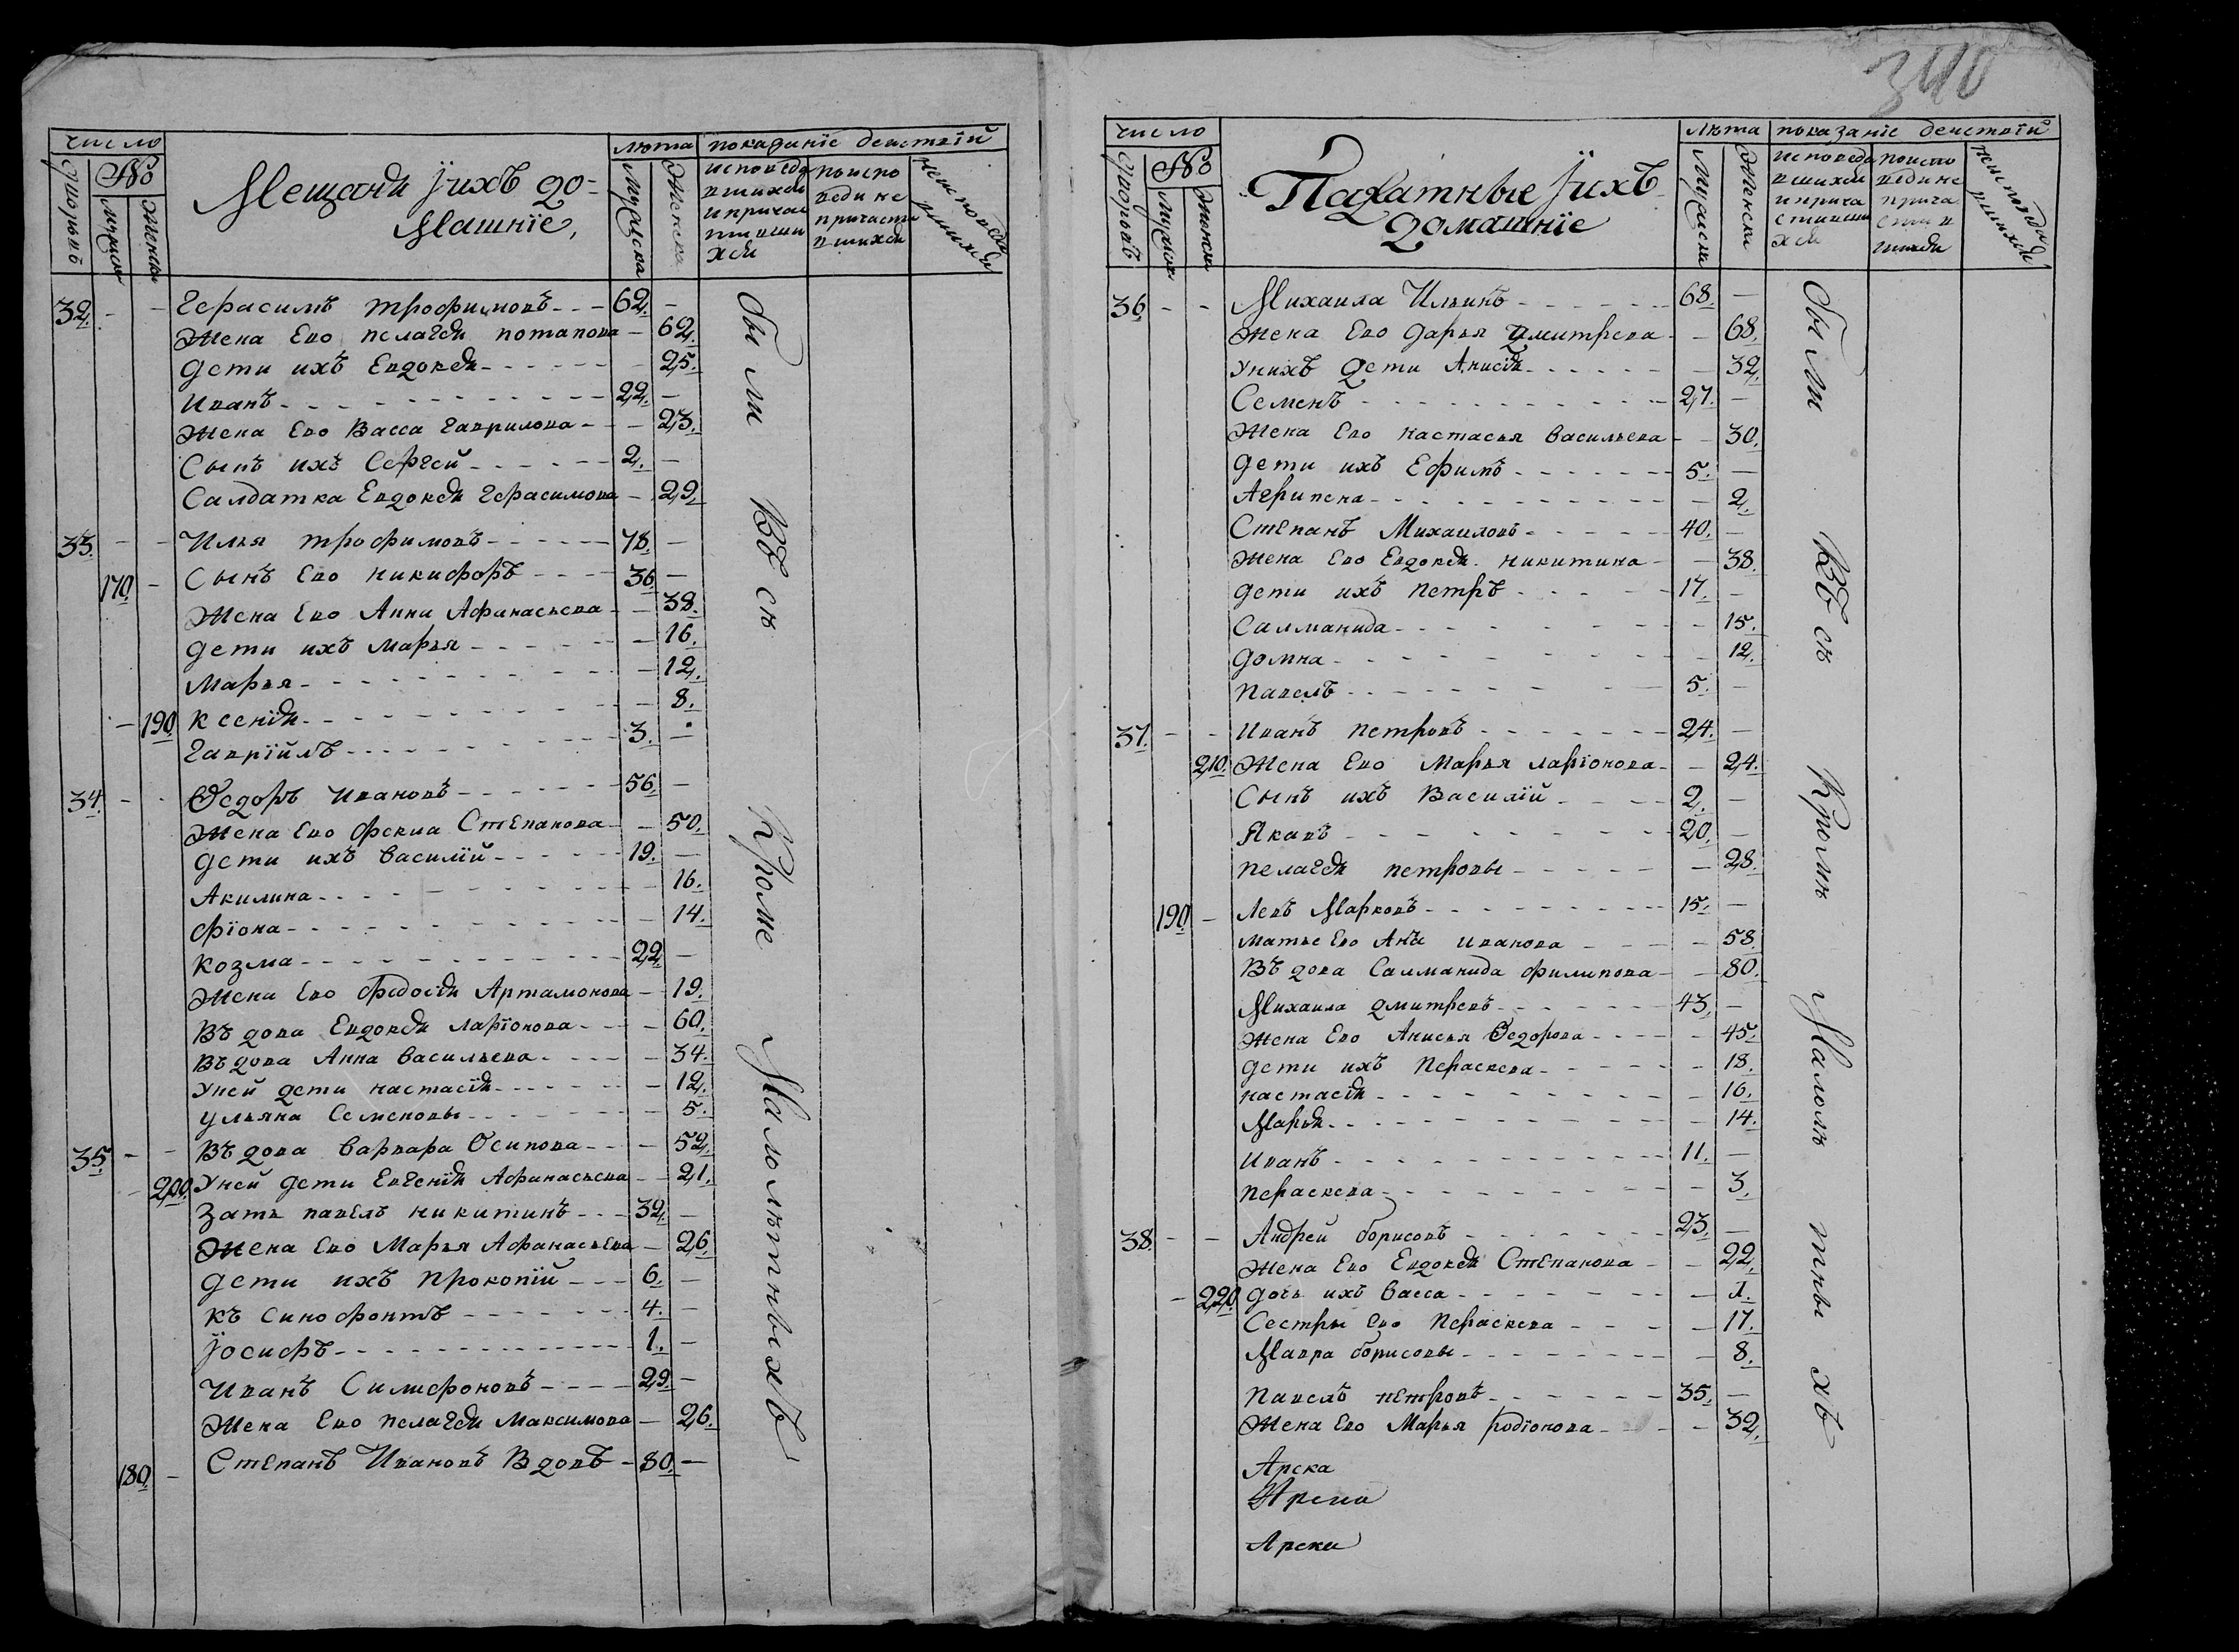 число
№
дворовъ
мужска
женска
Мещаня ихъ до-
машнїе,
лѣта
мужска
женска
показанїе деиствїй
исповеда
вшихся
и причас
тивши
хся
по испо
веди не
причасти
вшихся
неисповеда
вшихся
32. - - Герасимъ трофимовъ - - - 62. -
Жена Ево пелагея потапова - 62.
дети ихъ Евдокея - - - - - 25.
Иванъ - - - - - - - - - - - 22. -
Жена Ево Васса гаврилова - - - 23.
Сынъ ихъ Сергей - - - - - 2. -
Салдатка Евдокея Герасимова - 29.
33. - - Илья трофимовъ - - - - - 78. -
170. - Сынъ Ево никифоръ - - - - 36. -
Жена Ево Анна Афанасьева - - 38.
дети ихъ марья - - - - - - 16.
Марья - - - - - - - - - - - 12.
- 190. ксенїя - - - - - - - - - - 8.
гаврїилъ - - - - - - - - - 3. -
34. - - Ѳедоръ Ивановъ - - - - - - 56. -
Жена Ево фекла Степанова - - 50.
дети ихъ василїй - - - - - 19. -
Акилина - - - - - - - - - - 16.
фїона - - - - - - - - - - - 14.
козма - - - - - - - - - - - 22. -
Жена Ево федосїя Артамонова - 19.
Въдова Евдокея ларїонова - - - - 60.
Въдова Анна васильева - - - - - 34.
У ней дети настасїя - - - - - - 12.
ульяна Семеновы - - - - - - - 5.
35. - - Въдова варвара Осипова - - - - 52.
- 200. У ней дети Евгенїя Афанасьева - - 21.
Зать павелъ никитинъ - - - 32. -
Жена Ево Марья Афанасьева - 26.
дети ихъ прокопїй - - - 6. -
къ синофонтъ - - - - - - - 4. -
Їосифъ - - - - - - - - - - - 1. -
Иванъ Симефоновъ - - - - 29. -
Жена Ево пелагея максимова - 26.
180. - Степанъ Ивановъ Вдовъ - 80. -
были Всѣ Кроме Малолѣтныхъ
340
число
№
дворовъ
мужска
женска
Падатные ихъ
домашнїе
лѣта
мужска
женска
показанїе деиствїй
исповеда
вшихся
и прича
стивши
хся
по испо
веди не
прича
сти в
шихся
неисповеда
вшихся
36. - - Михаила Ильинъ - - - - - - 68. -
Жена Ево дарья дмитрева - - 68.
У нихъ дети Анисїя - - - - - - - 32.
Семенъ - - - - - - - - - - - 27. -
Жена Ево настасья васильева - - 30.
дети ихъ Ефимъ - - - - - - - 5. -
Агрипена - - - - - - - - - - - 2.
Степанъ Михаиловъ - - - - - 40. -
Жена Ево Евдокея никитина - - 38.
дети ихъ петръ - - - - - 17. -
Салманида - - - - - - - - - 15.
домна - - - - - - - - - - 12.
павелъ - - - - - - - - - 5. -
37. - - Иванъ петровъ - - - - - - - 24. -
210. Жена Ево Марья ларїонова - - 24.
Сынъ ихъ Василїй - - - - 2. -
Якавъ - - - - - - - - - - 20. -
пелагея петровы - - - - - - 28.
190. - Левъ Марковъ - - - - - - - - - 15. -
мать Ево Анна иванова - - - - 58.
Въдова Салманида филипова - - 80.
Михаила дмитревъ - - - - - - 43. -
Жена Ево Анисья Ѳедорова - - - - - 45.
дети ихъ Пераскева - - - - - - 18.
настасїя - - - - - - - - - - 16.
Марья - - - - - - - - - - - 14.
Иванъ - - - - - - - - - - - 11. -
пераскева - - - - - - - - - - 3.
38. - - Андрей борисовъ - - - - - - - 23. -
Жена Ево Евдокея Степанова - - 22.
- 220. дочь ихъ васса - - - - - - - - 1.
Сестры Ево Пераскева - - - - 17.
Мавра борисовы - - - - - - - - 8.
Павелъ петровъ - - - - - - 35. -
Жена Ево Марья родїонова - - - - 32.
Арска
Арска
Арска
были Всѣ Кромѣ Малолѣтныхъ